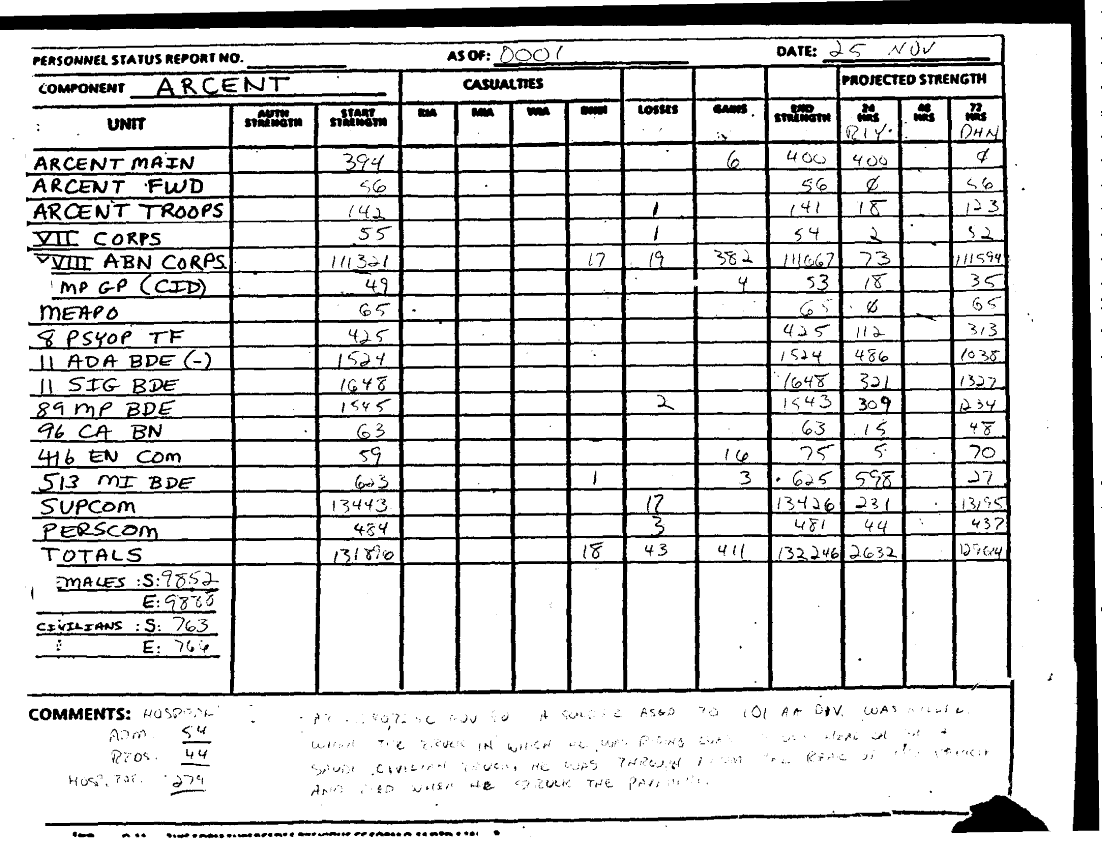 PERSONNEL STATUS REPORT NO. AS OF: D001 DATE: 25 NOV
COMPONENT ARCENT CASUALTIES PROJECTED STRENGTH
UNIT AUTH STRENGTH START STRENGTH KIA MIA WIA LOSSES GAINS END STRENGTH 24 HRS 48 HRS 72 HRS
RIY. DHN
ARCENT MAIN 394 6 400 400 ∅
ARCENT FWD 56 56 ∅ 56
ARCENT TROOPS 142 1 141 18 123
VII CORPS 55 1 54 2 52
XVIII ABN CORPS 111321 17 19 382 111667 73 111594
MP GP (CID) 49 4 53 18 35
MEAPO 65 65 ∅ 65
8 PSYOP TF 425 425 112 313
11 ADA BDE (-) 1524 1524 486 1038
11 SIG BDE 1648 1648 321 1327
89 MP BDE 1545 2 1543 309 1234
96 CA BN 63 63 15 48
416 EN COM 59 16 75 5 70
513 MI BDE 623 1 3 625 598 27
SUPCOM 13443 17 13426 231 13195
PERSCOM 484 3 481 44 437
TOTALS 131896 18 43 411 132246 2632
MALES : S: 9852
E:
CIVILIANS : S: 763
E: 766
COMMENTS: HOSPITAL A SOLDIER 101 DIV. WAS
ADM. 54 WHEN THE TRUCK IN WHICH HE WAS RIDING
44 SAUDI CIVILIAN TRUCK. HE WAS THROUGH FROM THE REAR OF
HOSP. 279 AND DIED WHEN HE STRUCK THE